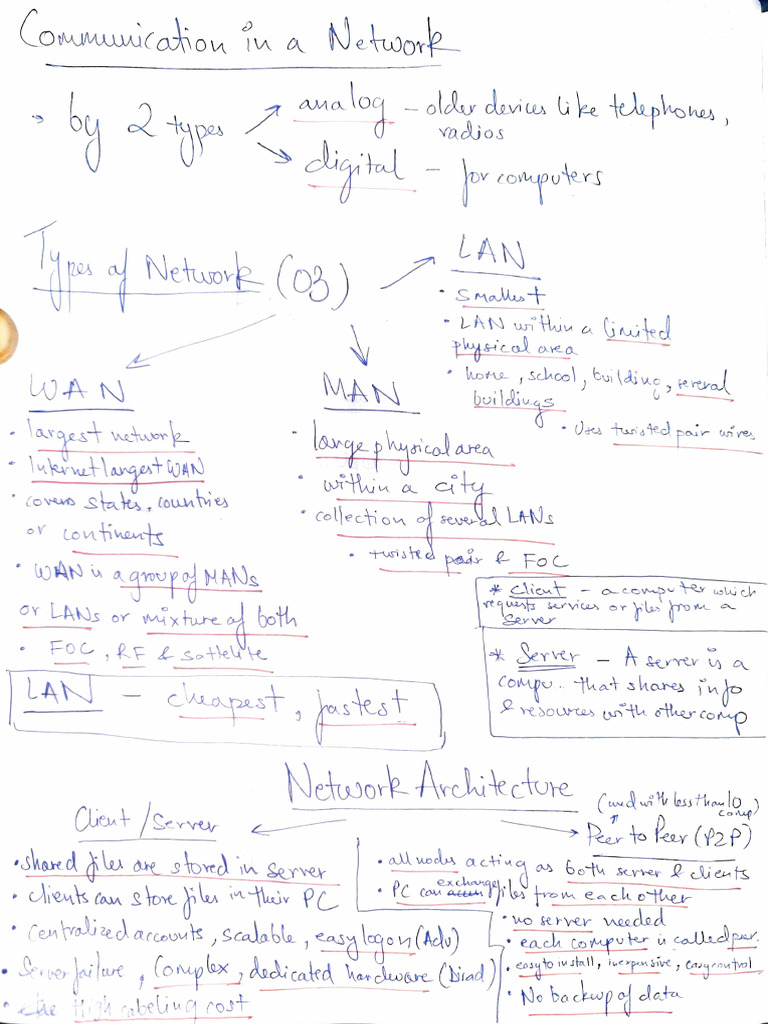 Communication in a Network
by 2 types
analog – older devices like telephones,
radios
digital – for computers
Types of Network (03)
LAN
• Smallest
• LAN within a limited
physical area
• home, school, building, several
buildings
• Uses twisted pair wires
WAN
• largest network
• Internet largest WAN
• covers states, countries
or continents
• WAN is a group of MANs
or LANs or mixture of both
• FOC, RF & sattelite
MAN
• large physical area
• within a city
• collection of several LANs
• twisted pair & FOC
* Client – a computer which
requests services or files from a
Server
* Server – A server is a
compu.. that shares info
& resources with other comp
LAN – cheapest, fastest
Network Architecture
Client/Server
• shared files are stored in server
• clients can store files in their PC
• Centralized accounts, scalable, easy logon (Adv)
• Server failure, Complex, dedicated hardware (Disad)
• the High cabeling cost
(used with less than 10
comp)
Peer to Peer (P2P)
• all nodes acting as both server & clients
• PC can exchange files from each other
• no server needed
• each computer is called peer.
• easy to install, inexpensive, easy control
• No backup of data